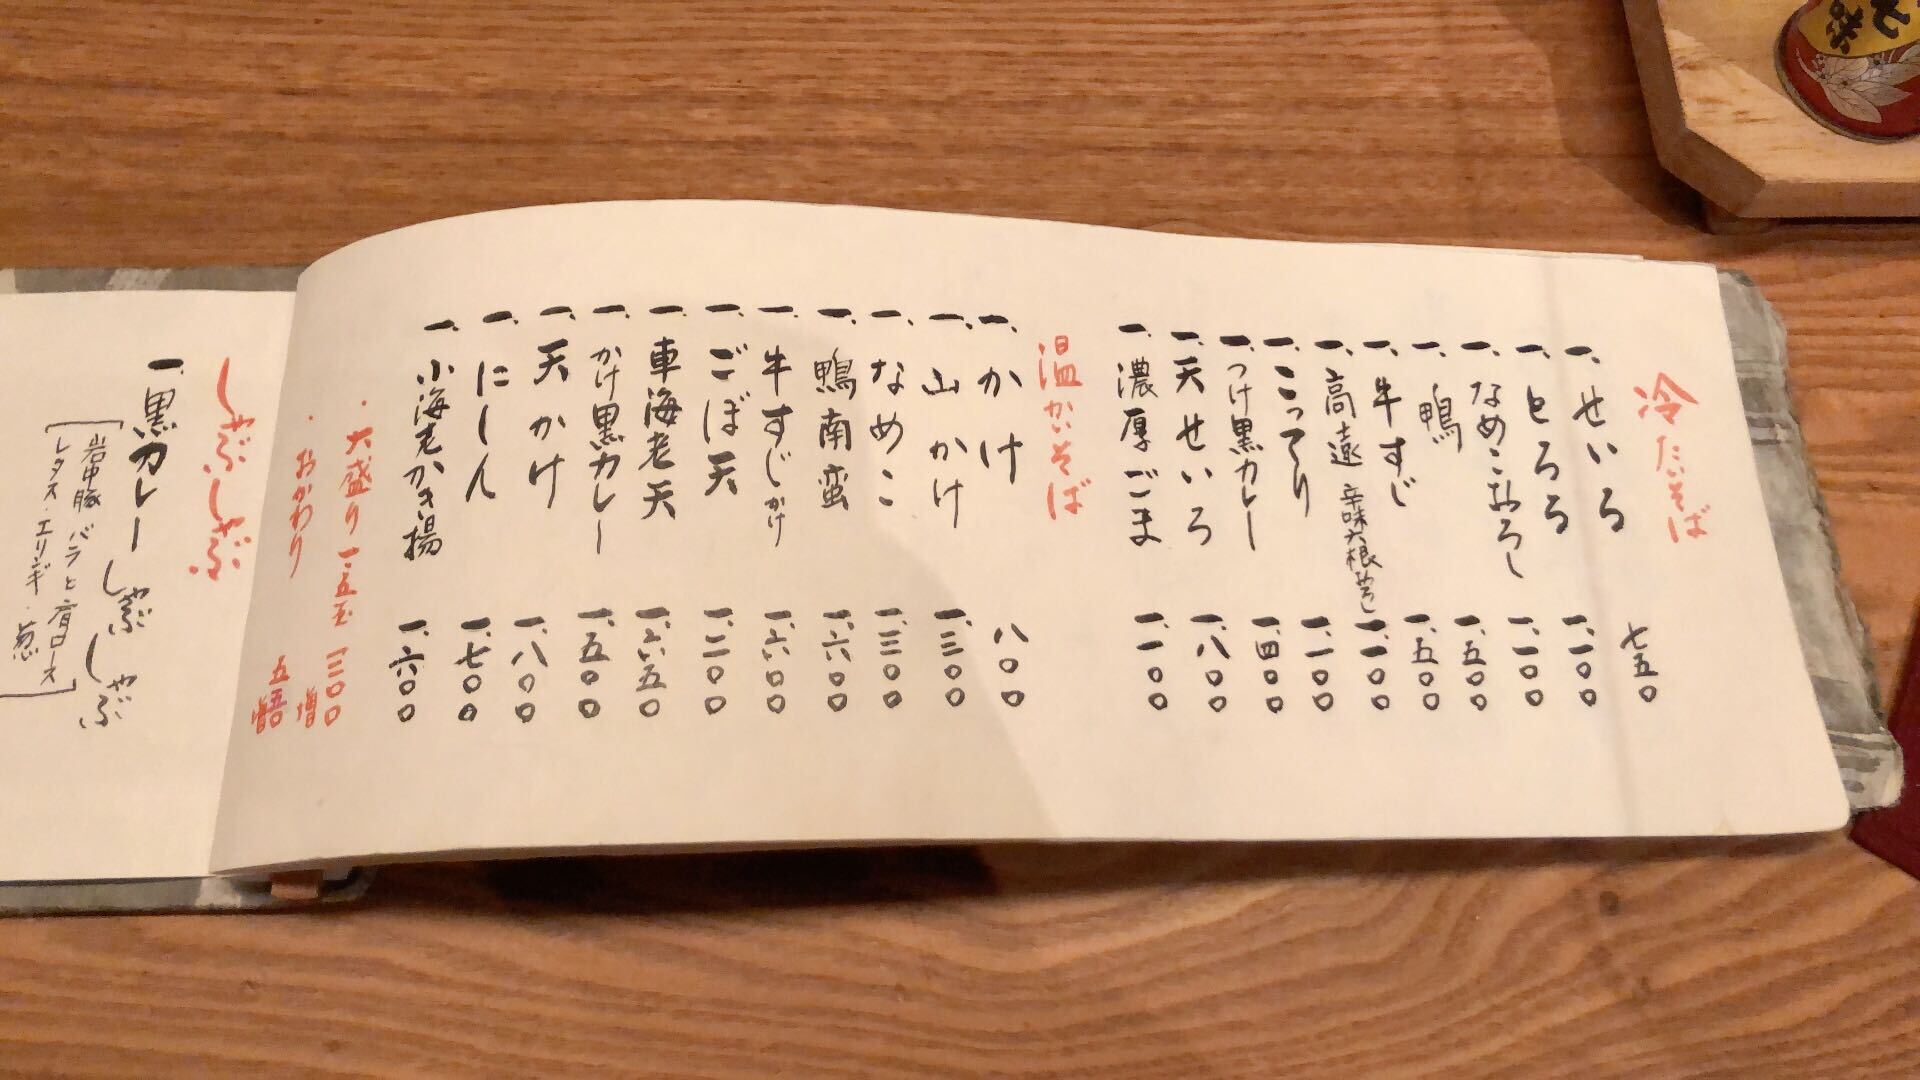 冷たいそば
一、せいろ 七五〇
一、とろろ 一、一〇〇
一、なめこおろし 一、一〇〇
一、鴨 一、五〇〇
一、牛すじ 一、五〇〇
一、高遠 辛味大根おろし 一、一〇〇
一、こってり 一、一〇〇
一、つけ黒カレー 一、四〇〇
一、天せいろ 一、八〇〇
一、濃厚ごま 一、一〇〇
温かいそば
一、かけ 八〇〇
一、山かけ 一、三〇〇
一、なめこ 一、三〇〇
一、鴨南蛮 一、六〇〇
一、牛すじかけ 一、六〇〇
一、ごぼ天 一、二〇〇
一、車海老天 一、六五〇
一、かけ黒カレー 一、五〇〇
一、天かけ 一、八〇〇
一、にしん 一、七〇〇
一、小海老かき揚 一、六〇〇
・大盛り 一・五玉 三〇〇増
・おかわり 五五〇増
しゃぶしゃぶ
一、黒カレーしゃぶしゃぶ
岩中豚 バラと肩ロース
レタス・エリンギ・葱
七味